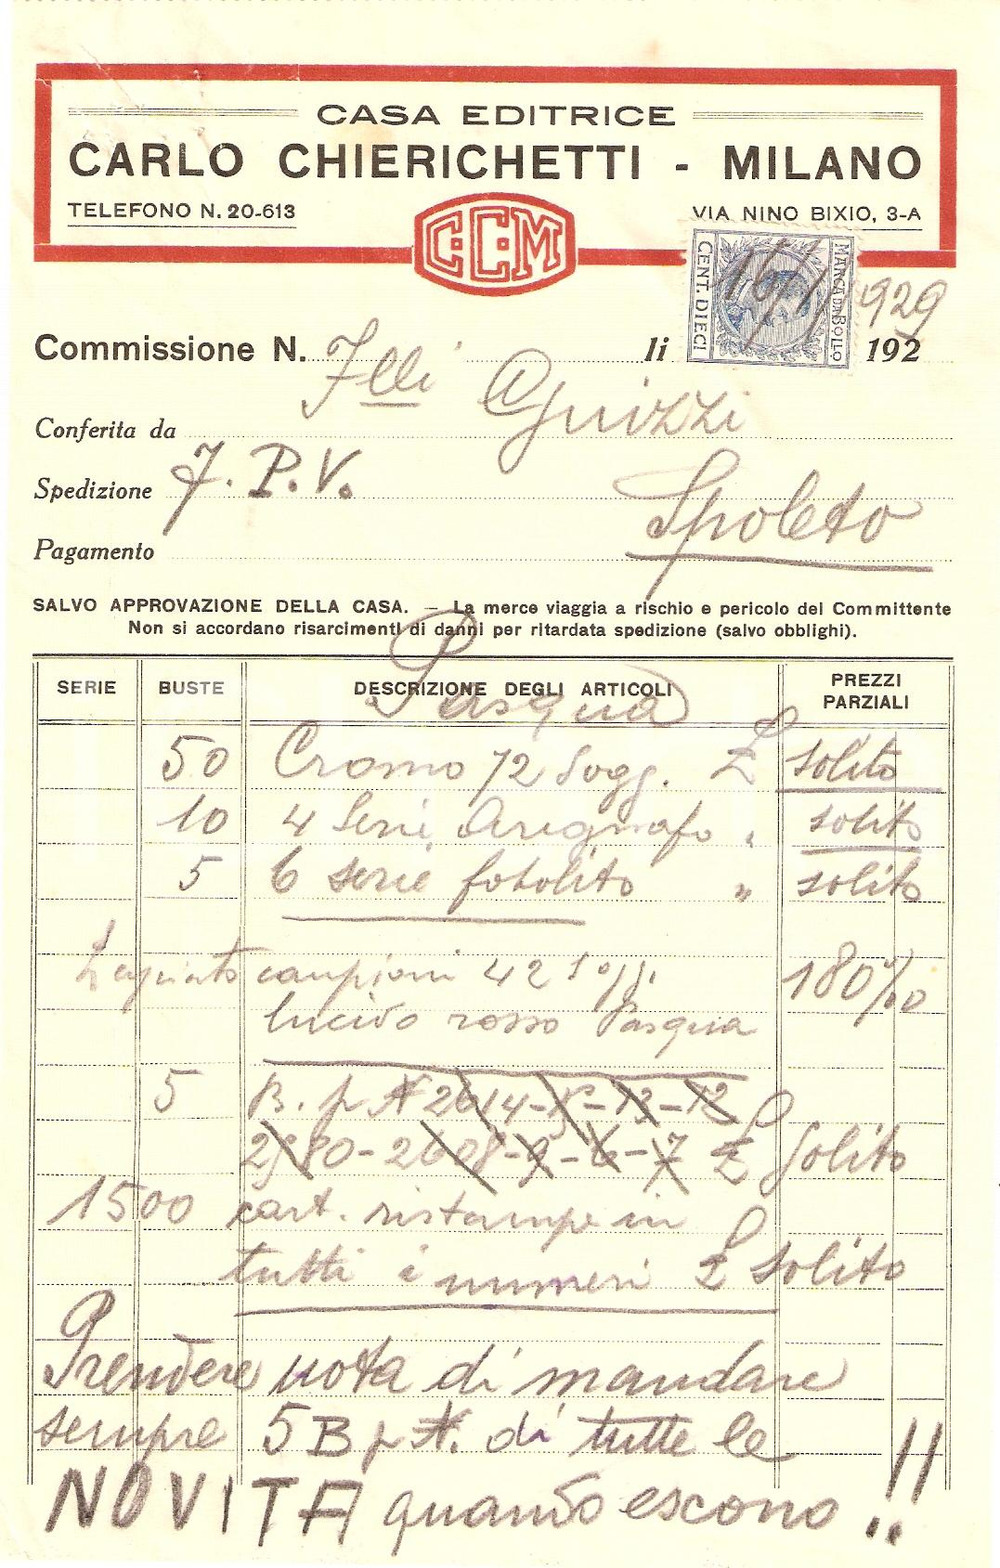 CASA EDITRICE
CARLO CHIERICHETTI - MILANO
TELEFONO N. 20-613
VIA NINO BIXIO, 3-A
CCM
CENT. DIECI
MARCA DA BOLLO
16/1 1929
Commissione N. lì 192
Conferita da Flli Guizzi
Spedizione F. P.V.
Spoleto
Pagamento
SALVO APPROVAZIONE DELLA CASA. — La merce viaggia a rischio e pericolo del Committente
Non si accordano risarcimenti di danni per ritardata spedizione (salvo obblighi).
Pasqua
SERIE BUSTE DESCRIZIONE DEGLI ARTICOLI PREZZI PARZIALI
50 Cromo 72 Sogg. £ solito
10 4 Serie " solito
5 6 serie fotolito " solito
campioni 42 sogg. 180%
lucido rosso Pasqua
5 B. p N 2614 - - 13 - 12
2580 - 2608 - 9 - 6 - 7 £ Solito
1500 cart. ristampe in
tutti i numeri £ solito
Prendere nota di mandare
sempre 5 B p N. di tutte le
NOVITA quando escono !!